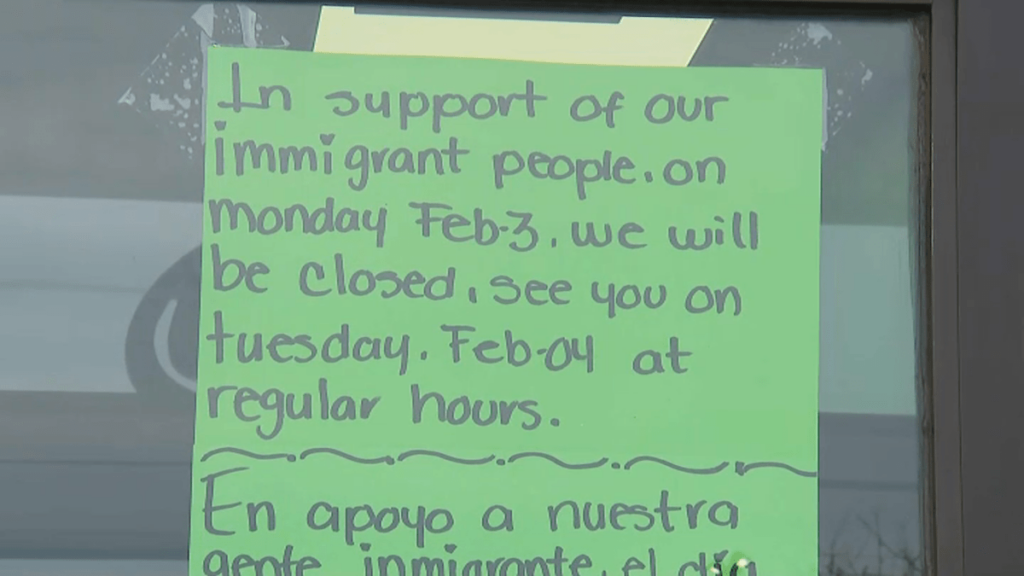 In support of our
immigrant people. on
monday Feb-3. we will
be closed. see you on
tuesday. Feb-04 at
regular hours.
En apoyo a nuestra
gente inmigrante. el día